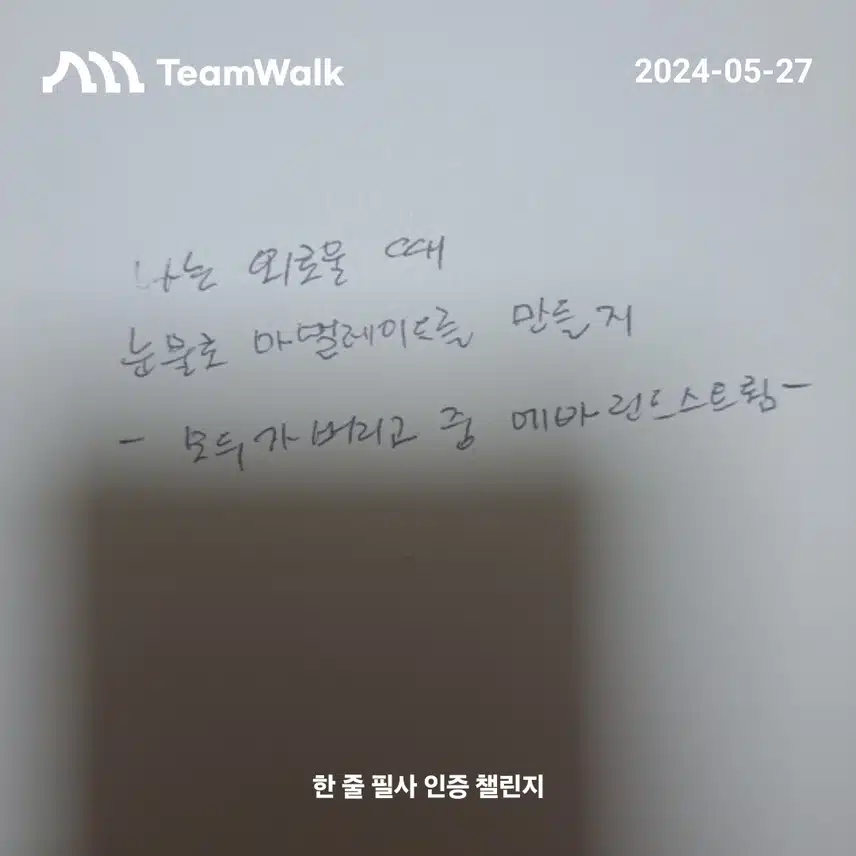 TeamWalk
2024-05-27
나는 외로울 때
눈물로 마멀레이드를 만들지
- 모두 가 버리고 중 에바 린드스트룀 -
한 줄 필사 인증 챌린지